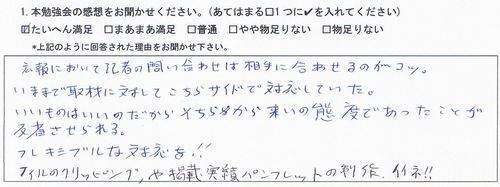 1. 本勉強会の感想をお聞かせください。(あてはまる□1つに✔を入れてください)
☑たいへん満足 □まあまあ満足 □普通 □やや物足りない □物足りない
*上記のように回答された理由をお聞かせ下さい。
広報において記者の問い合わせは相手に合わせるのがコツ。
いままで取材に対してこちらサイドで対応していた。
いいものはいいのだからそちらから来いの態度であったことが
反省させられる。
フレキシブルな対応を!!
ファイルのクリッピング、や掲載実績パンフレットの制作、イイネ!!